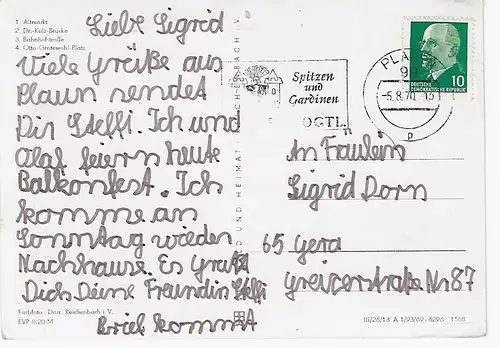 1. Altmarkt
2. Dr.-Külz-Brücke
3. Bahnhofstraße
4. Otto-Grotewohl-Platz
Liebe Sigrid
Viele Grüße aus
Plauen sendet
Dir Steffi. Ich und
Olaf feiern heute
Balkonfest. Ich
komme am
Sonntag wieder
Nachhause. Es Grüßt
Dich Deine Freundin Steffi
Brief kommt
Farbfoto: Darr, Reichenbach i. V.
EVP 0,20 M
BILD UND HEIMAT REICHENBACH I. V.
Spitzen
und
Gardinen
OGTL.
PLAUEN
-5.8.70.-15
p
10
DEUTSCHE
DEMOKRATISCHE REPUBLIK
An Fräulein
Sigrid Dorn
65 Gera
Greizerstraße Nr 87
III/26/13 A 1/93/69 6296 1568